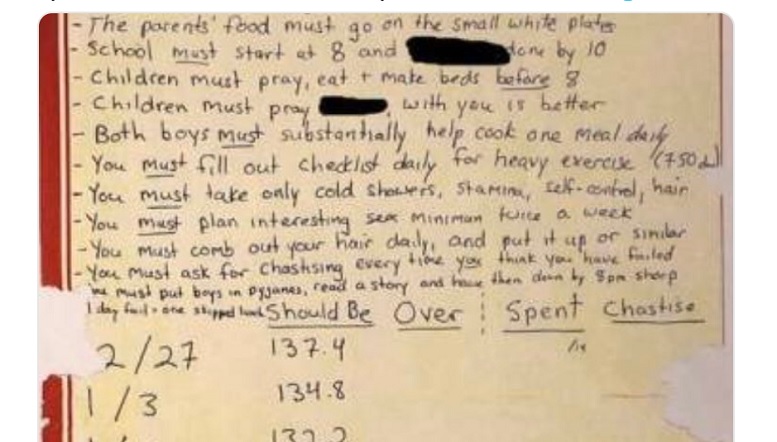 - The parents' food must go on the small white plates
- School must start at 8 and done by 10
- Children must pray, eat + make beds before 8
- Children must pray , with you is better
- Both boys must substantially help cook one meal daily
- You must fill out checklist daily for heavy exercise (750
- You must take only cold showers, stamina, self-control, hair
- You must plan interesting sex minimum twice a week
- You must comb out your hair daily, and put it up or similar
- You must ask for chastising every time you think you have failed
must put boys in pyjanes, read a story and have them down by 8pm sharp
1 day fail = one skipped Should Be Over Spent Chastise
2/27 137.4
1/3 134.8
132.2